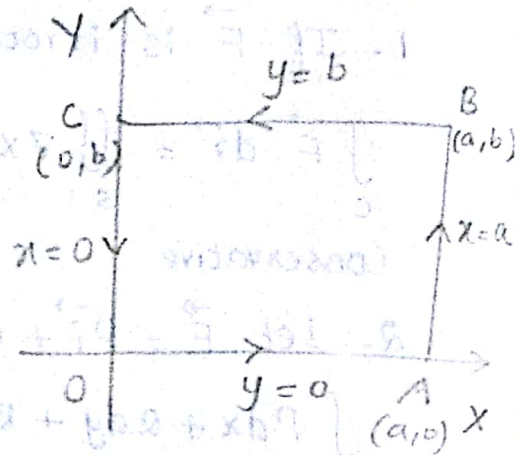 Y
y = b
C
(0,b)
B
(a,b)
x = 0
x = a
O
y = 0
A
(a,0)
X